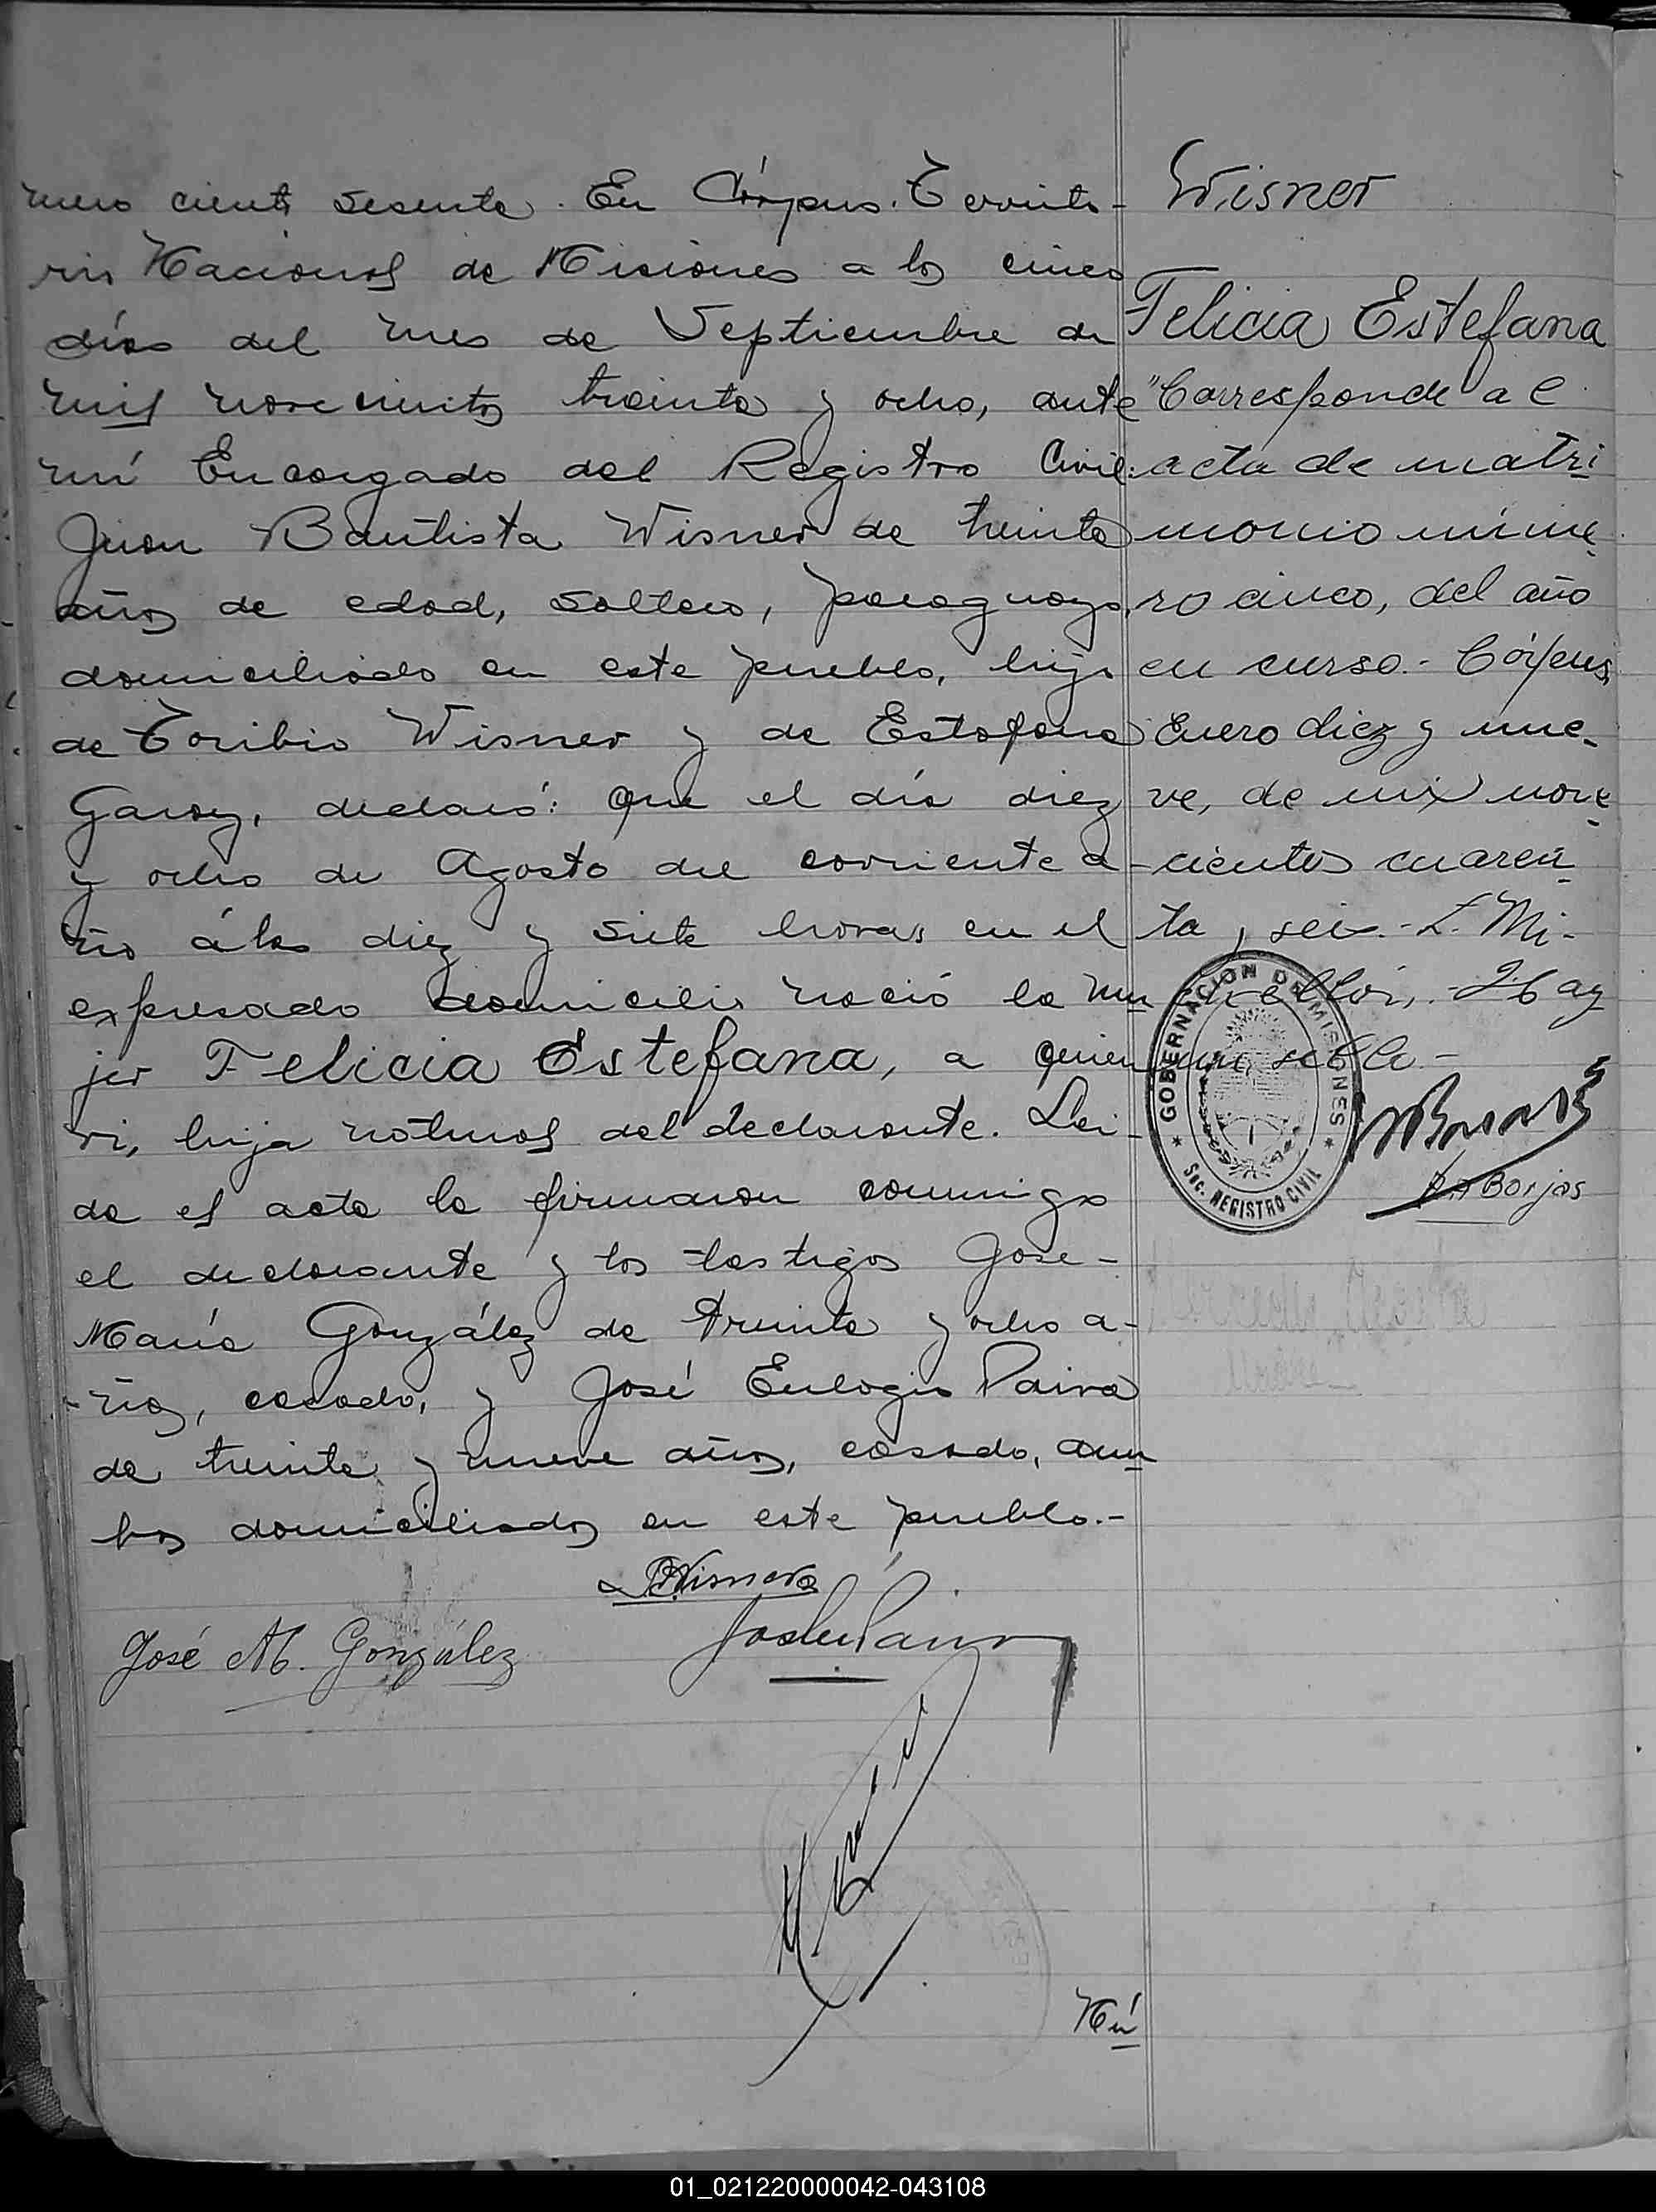 mero ciento sesenta. En Córpus. Territo-
rio Nacional de Misiones a los cinco
días del mes de Septiembre de
mil novecientos treinta y ocho, ante
mí Encargado del Registro Civil:
Juan Bautista Wisner de treinta
años de edad, soltero, paraguayo,
domiciliado en este pueblo, hijo
de Toribio Wisner y de Estefana
Garay, declaró: que el día diez
y ocho de Agosto del corriente a-
ño á las diez y siete horas en el
expresado domicilio nació la mu
jer Felicia Estefana, a quien
vi, hija natural del declarante. Lei-
da el acta la firmaron conmigo
el declarante y los testigos José-
María González de treinta y ocho a-
-ños, casado, y José Eulogio Paiva
de treinta y nueve años, casado, am
bos domiciliados en este pueblo.-
José M. González
Nú
Wisner
Felicia Estefana
"Corresponde al
acta de matri
monio núme
ro cinco, del año
en curso.- Córpus,
Enero diez y nue-
ve, de mil nove
cientos cuaren
ta y seis.- L. Mi-
Hay
un sello-
GOBERNACION DE MISIONES
Sec. REGISTRO CIVIL
Borjas
01_021220000042-043108